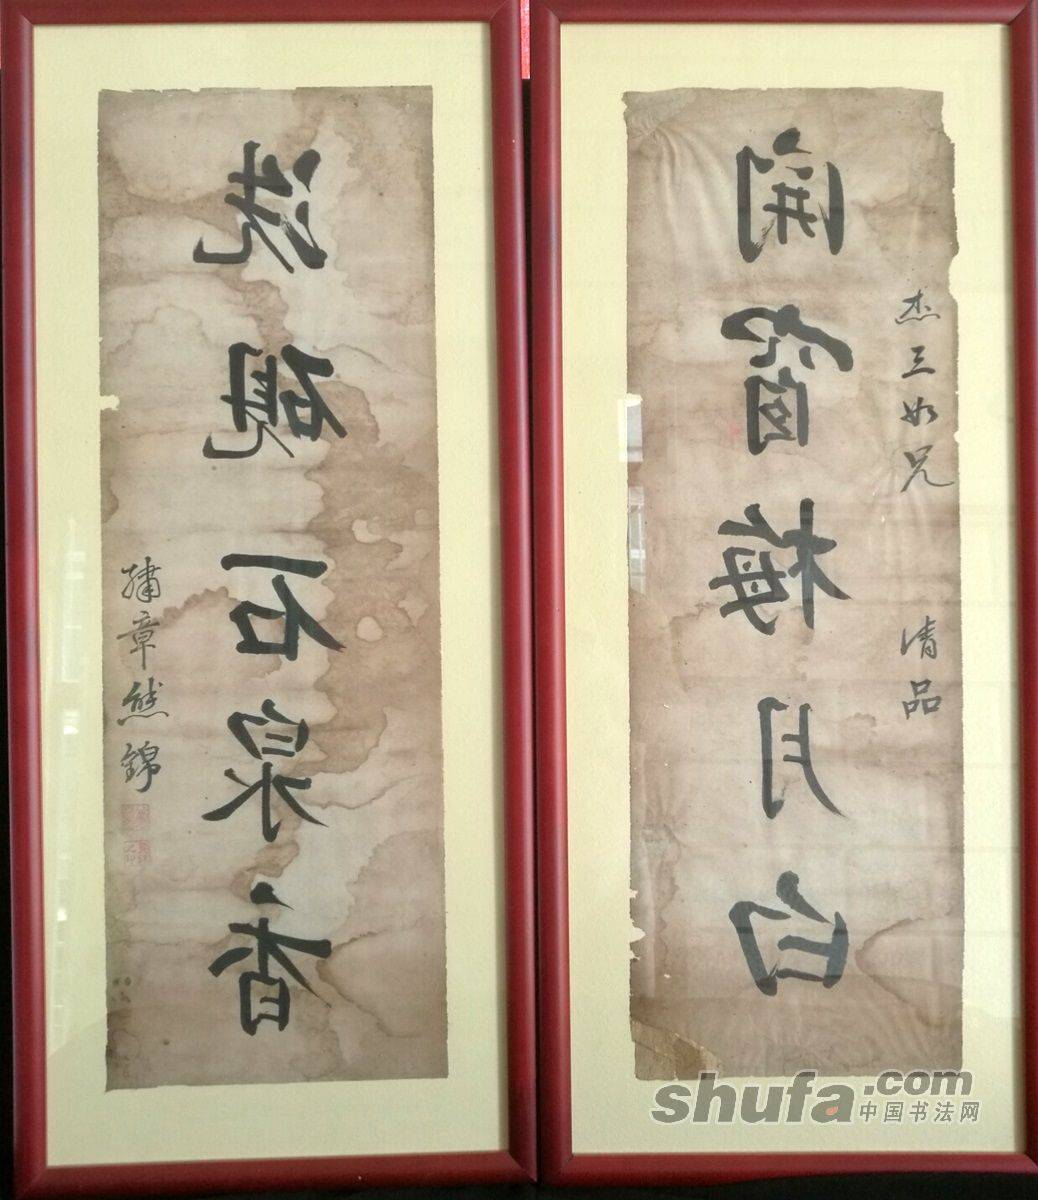 杰三如兄
清品
開窗梅月白
洗硯石泉香
繡章熊錦
shufa.com
中国书法网